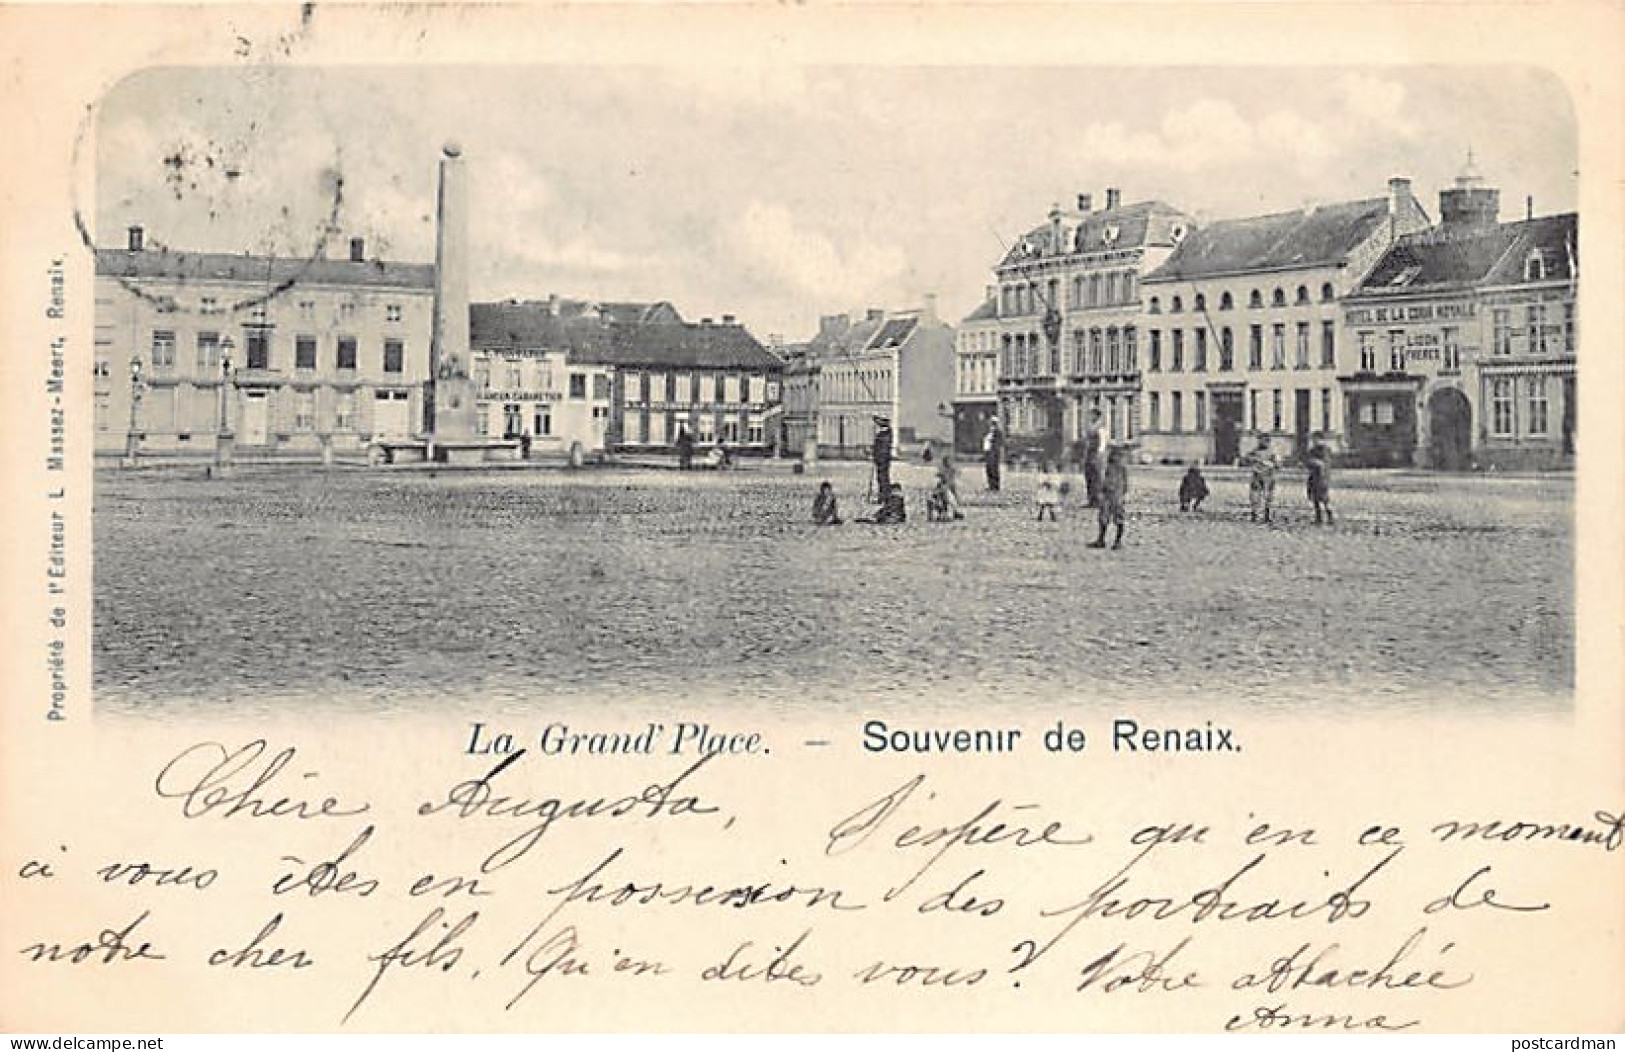 HOTEL DE LA COUR ROYALE
LIGON
FRERES
CABARETIER
Propriété de l'Editeur L Massez-Meert, Renaix.
La Grand' Place. – Souvenir de Renaix.
Chère Augusta, J'espère qu'en ce moment
ci vous êtes en possession des portraits de
notre cher fils. Qu'en dites vous? Votre attachée
Anna
delcampe.net
postcardman